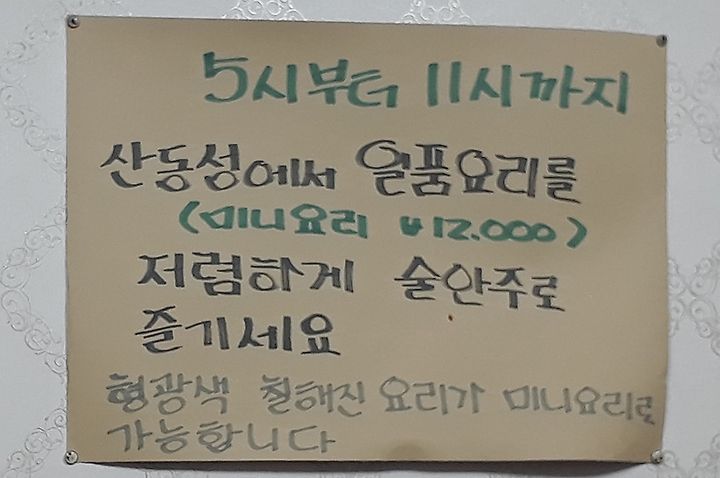 5시부터 11시까지
산동성에서 일품요리를
(미니요리 ₩12.000)
저렴하게 술안주로
즐기세요
형광색 칠해진 요리가 미니요리로
가능합니다